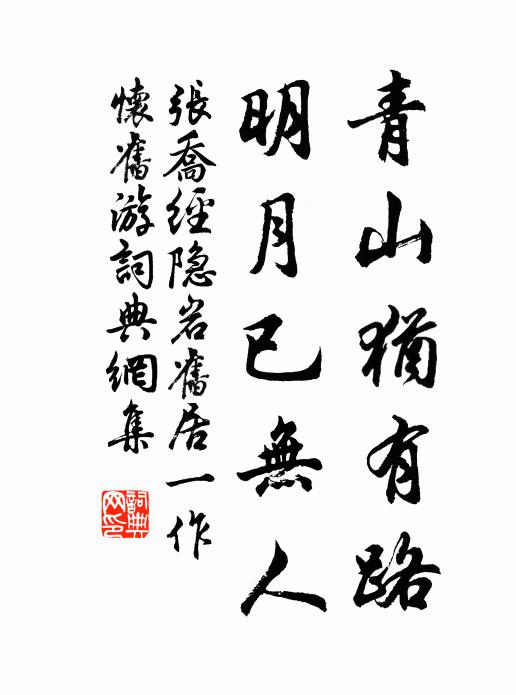 青山猶有路
明月已無人
張喬經隐岩舊居一作
懷舊游詞典網集
詞典
网印